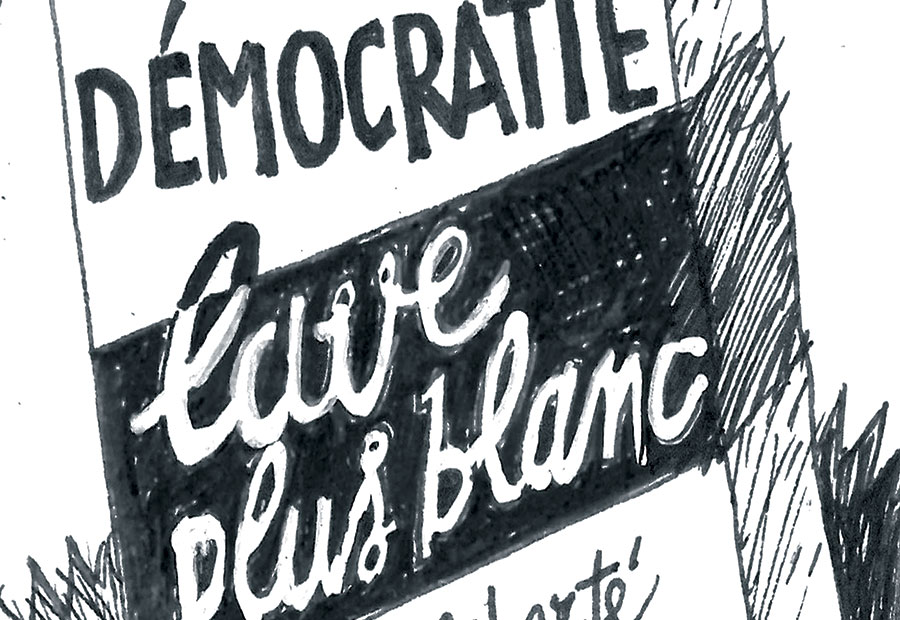 DÉMOCRATIE
lave
plus blanc